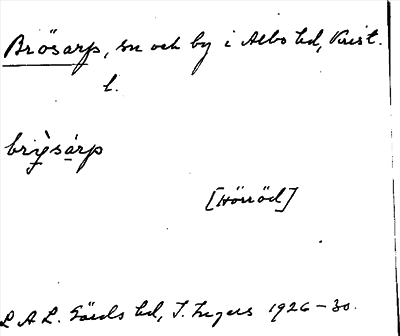 Brösarp, sn och by i Albo hd, Krist.
l.
brỳsàrp
[Hörröd]
L A L. Gärds hd, I. Ingers 1926-30.